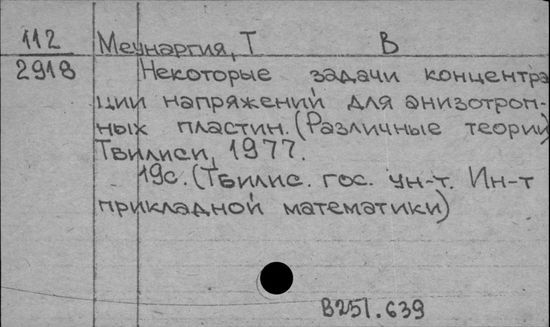 112 Меунаргия, Т В
2918 Некоторые задачи концентра
ции напряжений для анизотроп-
ных пластин. (Различные теории)
Твилиси, 1977.
19с. (Тбилис. гос. ун-т. Ин-т
прикладной математики)
В251.639